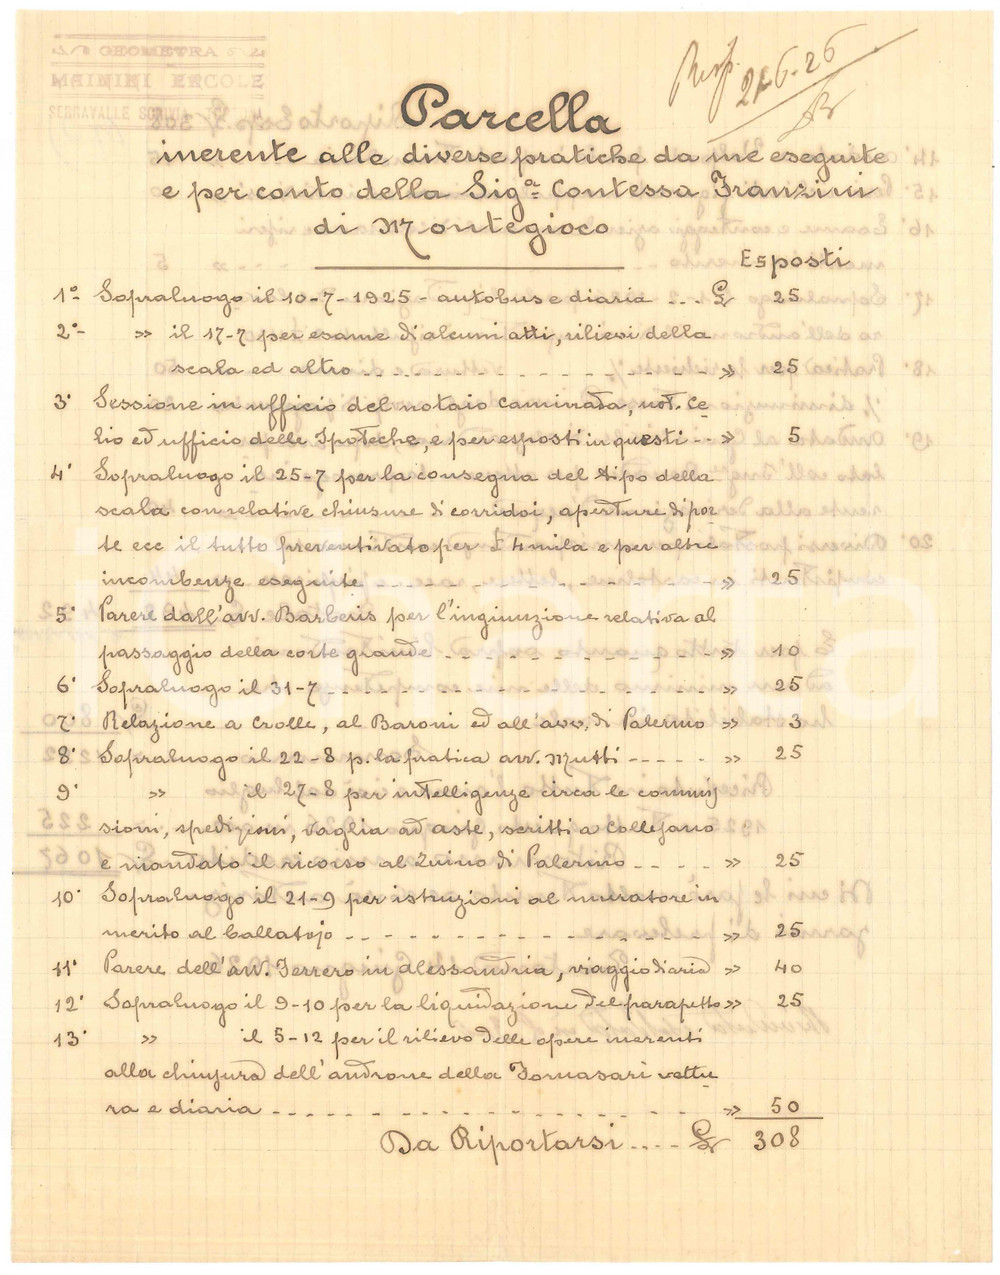 GEOMETRA
MAININI ERCOLE
SERRAVALLE SCRIVIA - TORTONA
21-6-26
Parcella
inerente alle diverse pratiche da me eseguite
e per conto della Sigra Contessa Franzini
di Montegioco
Esposti
1° Sopraluogo il 10-7-1925 - autobus e diaria ... £ 25
2° » il 17-7 per esame di alcuni atti, rilievi della
scala ed altro - - - » 25
3° Sessione in ufficio del notaio Camirada, not. Ce-
lio ed ufficio delle Ipoteche, e per esposti in questi - - » 5
4° Sopraluogo il 25-7 per la consegna del tipo della
scala con relative chiusure di corridoi, aperture di por
te ecc il tutto preventivato per £ 4 mila e per altre
incombenze eseguite - - - » 25
5° Parere dall'avv. Barberis per l'ingiunzione relativa al
passaggio della corte grande - - - » 10
6° Sopraluogo il 31-7 - - - » 25
7° Relazione a Crolle, al Baroni ed all'avv. di Palermo » 3
8° Sopraluogo il 22-8 p. la pratica avv. Mutti - - - » 25
9° » il 27-8 per intelligenze circa le commis
sioni, spedizioni, vaglia ad aste, scritti a Collejano
e mandato il ricorso al Zuino di Palermo - - - » 25
10° Sopraluogo il 21-9 per istruzioni al muratore in
merito al ballatojo - - - » 25
11° Parere dell'avv. Ferrero in Alessandria, viaggio diaria » 40
12° Sopraluogo il 9-10 per la liquidazione del parapetto » 25
13° » il 5-12 per il rilievo delle opere inerenti
alla chiusura dell'androne della Fornasari vettu
ra e diaria - - - » 50
Da Riportarsi .... £ 308